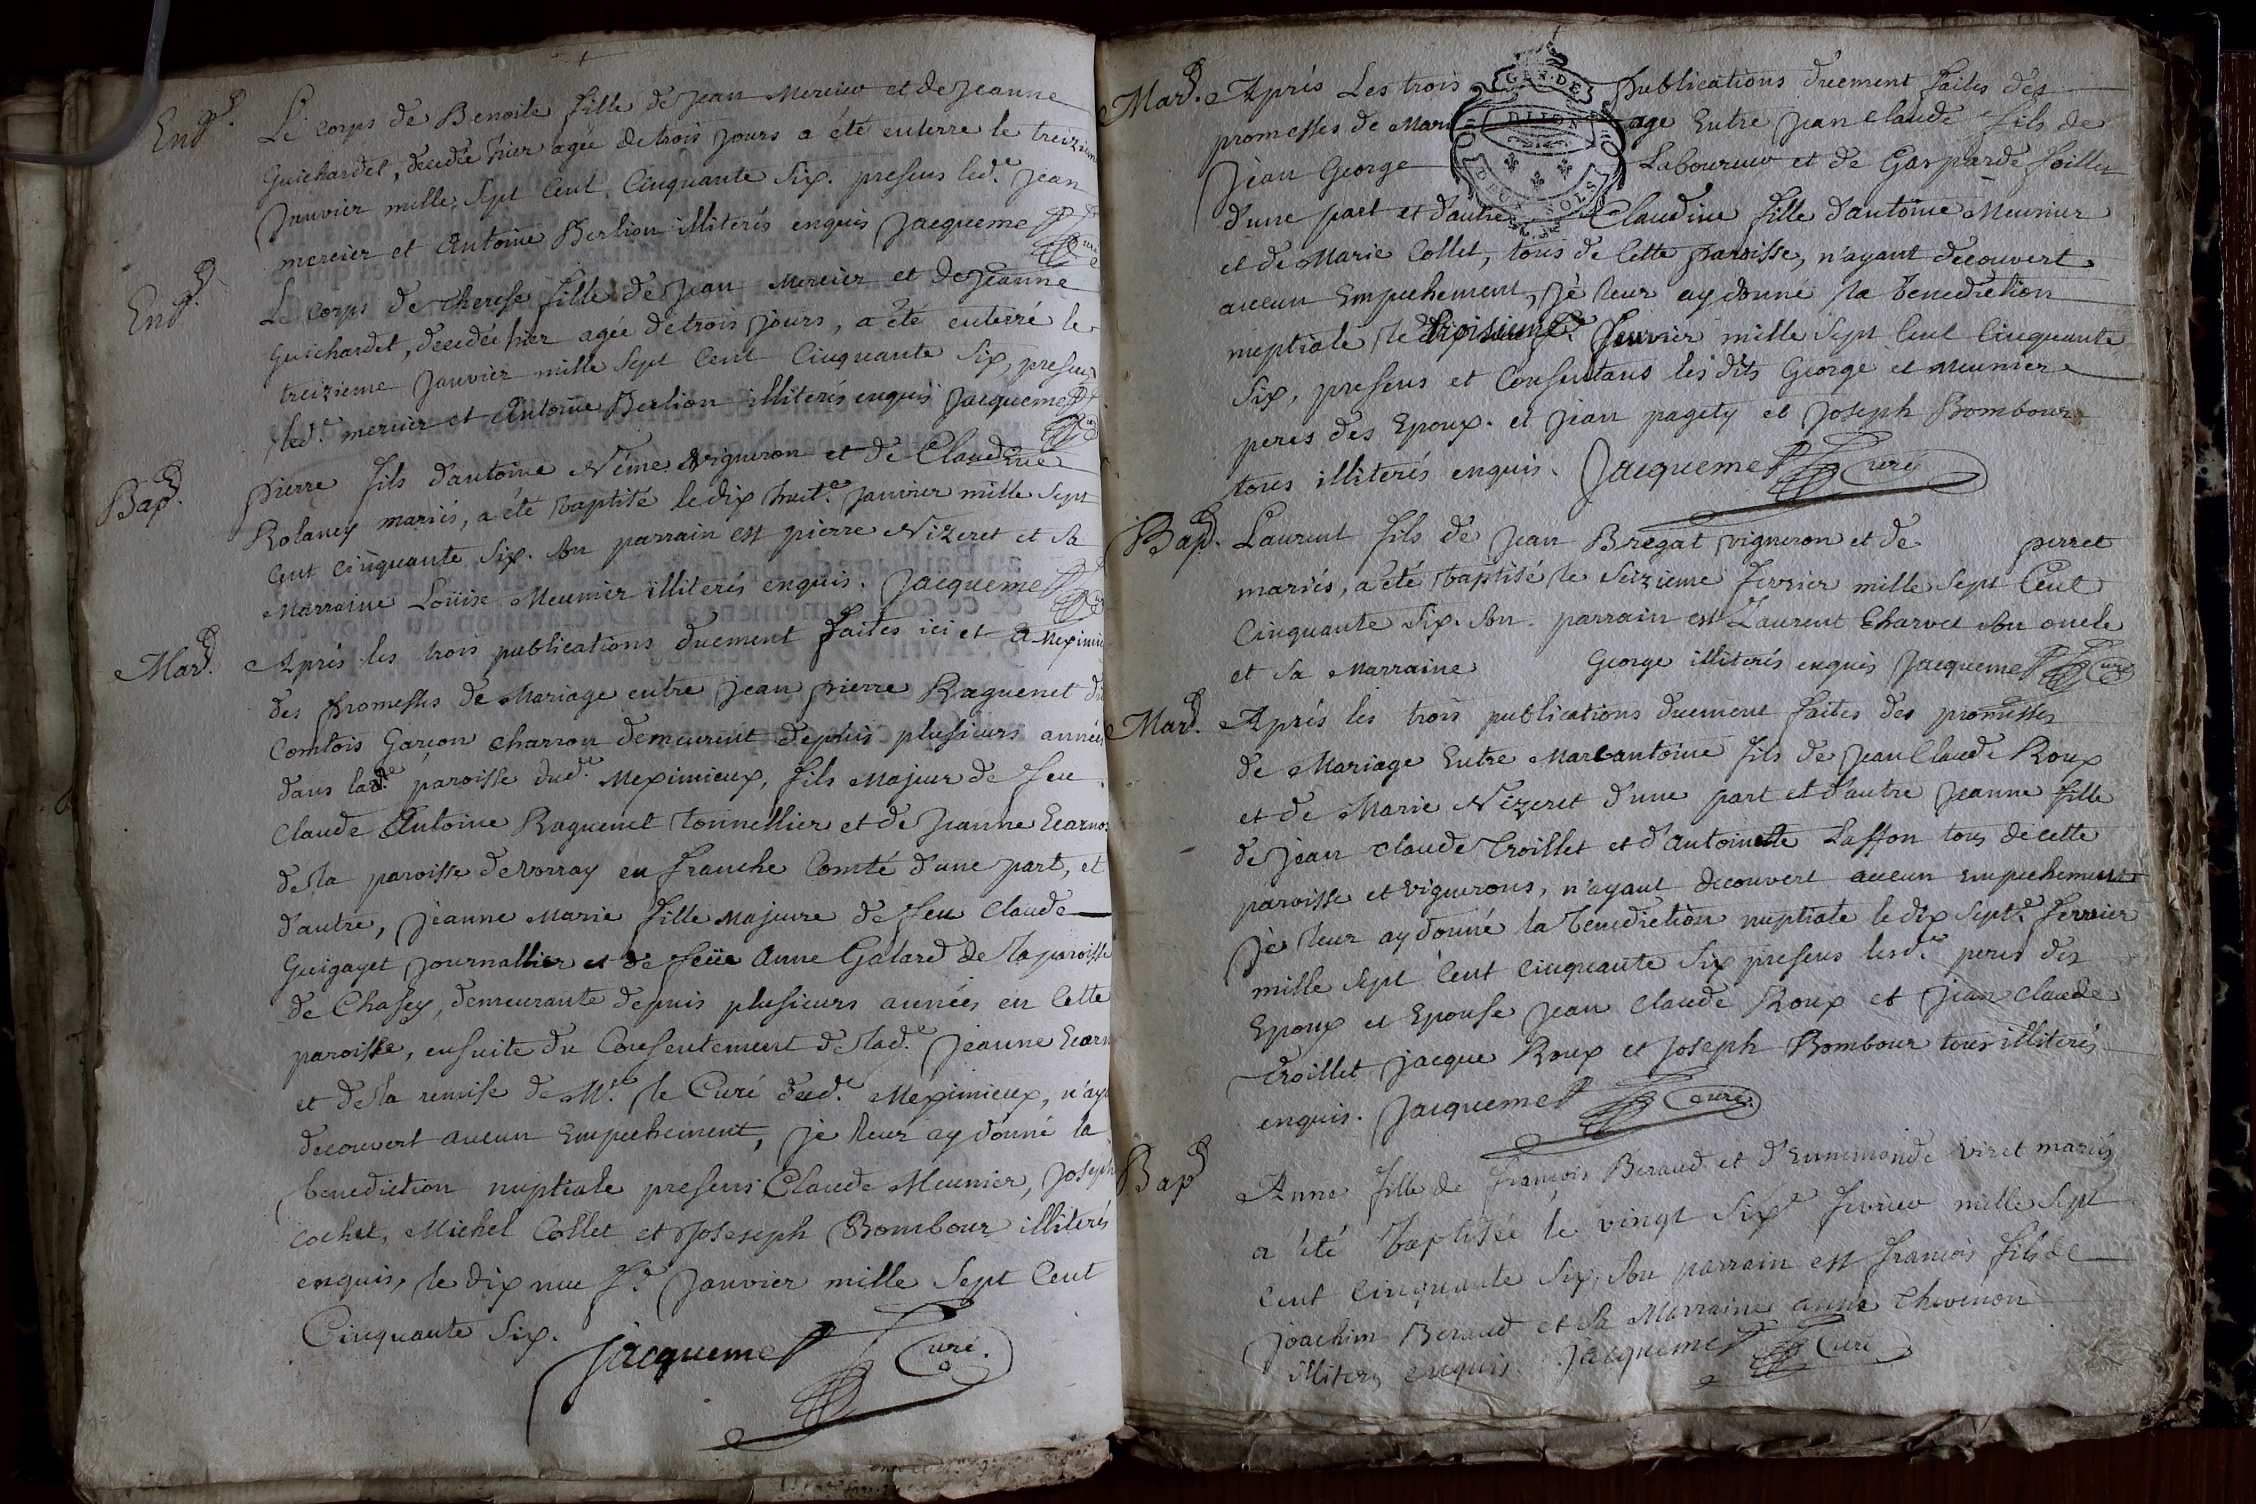 Engd.
Le corps de Benoite fille de jean Mercier et de jeanne
Guichardet, decedée hier agée de trois jours a été enterré le treizieme
janvier mille Sept Cent Cinquante Six. presens led. jean
mercier et Antoine Berlion illiterés enquis Jacquemet Curé
Engd.
Le corps de therese fille de jean Mercier et de jeanne
Guichardet, decedée hier agée de trois jours, a été enterré le
treizieme janvier mille Sept Cent Cinquante Six, presens
led. mercier et Antoine Berlion illiterés enquis Jacquemet Curé
Bapd.
pierre fils d'antoine Néme vigneron et de Claudine
Rolancy mariés, a été baptisé le dix huite. janvier mille Sept
Cent Cinquante Six. Son parrain est pierre Nizeret et Sa
Marraine Loüise Meunier illiterés enquis. Jacquemet
Mard.
Aprés les trois publications duement faites ici et a Meximieux
des promesses de Mariage entre jean pierre Raguenet dit
Comtois Garçon charron demeurent depuis plusieurs années
dans lade. paroisse dud. Meximieux, fils Majeur de feu
Claude Antoine Raguenet tonnellier et de jeanne
de la paroisse de vorray en franche Comté d'une part, et
d'autre, jeanne Marie fille Majeure de feu Claude
Guigayet journallier et de feüe Anne Galard de la paroisse
de Chasey, demeurante depuis plusieurs années en Cette
paroisse, ensuite du Consentement de lad. jeanne
et de la remise de Mr. le Curé dud. Meximieux, n'ayt
decouvert aucun Empechement, je leur ay donné la
benediction nuptiale presens Claude Meunier, joseph
cochet, Michel Collet et Joseseph Bombour illiterés
enquis, le dix neufe. janvier mille Sept Cent
Cinquante Six.
Jacquemet Curé.
GEN. DE
DIJON
DEUX SOLS
Mard. Aprés Les trois publications düement faites des
promesses de Mariage Entre jean claude fils de
jean George Laboureur et de Gasparde
d'une part et d'autre Claudine fille d'antoine Meunier
et de Marie Collet, tous de Cette paroisse, n'ayant decouvert
aucun Empechement, je leur ay donné la benediction
nuptiale le troisieme fevrier mille Sept Cent Cinquante
Six, presens et Consentans les dits George et Meunier
peres des Epoux. et jean pagety et joseph Bombour
tous illiterés enquis. Jacquemet Curé
Bapd. Laurent fils de jean Bregat vigneron et de perret
mariés, a été baptisé le Seizieme fevrier mille Sept Cent
Cinquante Six. Son parrain est Laurent Charvet Son oncle
et Sa Marraine George illiterés enquis Jacquemet Curé
Mard. Aprés les trois publications duement faites des promesses
de Mariage Entre Marcantoine fils de jean Claude Roux
et de Marie Nizeret d'une part et d'autre jeanne fille
de jean Claude Troillet et d'Antoinette Laffon tous de cette
paroisse et vignerons, n'ayant decouvert aucun empechement
je leur ay donné la benediction nuptiale le dix Septe. fevrier
mille Sept Cent Cinquante Six presens lesd. peres des
Epoux et Epouse jean Claude Roux et jean Claude
Troillet jacque Roux et joseph Bombour tous illiterés
enquis. Jacquemet Curé.
Bapd Anne fille de françois Beraud et d'Ennemonde viret mariés
a été baptisée le vingt Sixe fevrier mille Sept
Cent Cinquante Six, Son parrain est françois fils de
joachim Beraud et Sa Marraine anne thevenon
illiterés enquis. Jacquemet Curé